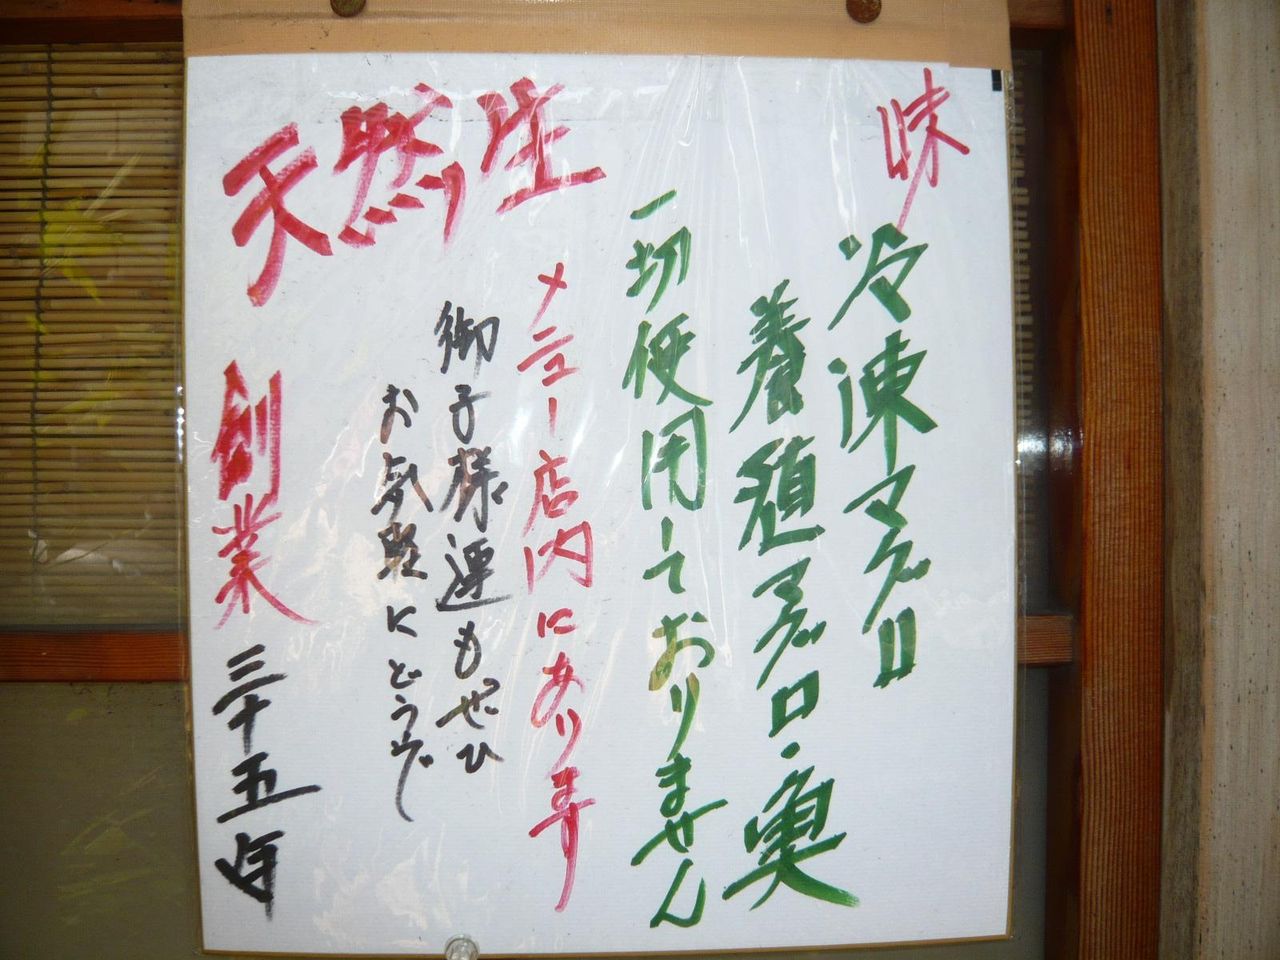 味
冷凍マグロ
養殖マグロ・魚
一切使用しておりません
メニュー店内にあります
御子様連もぜひ
お気軽にどうぞ
天然生
創業三十五年